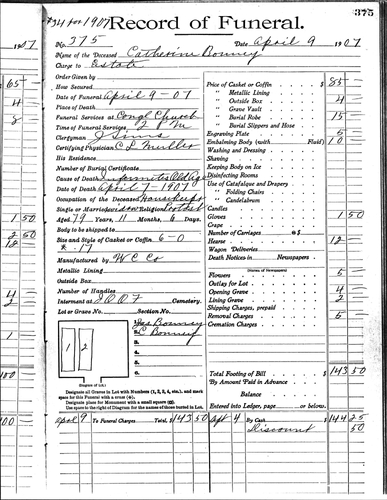 #34 for 1907
Record of Funeral.
375
No. 375
Date April 9 1907
Name of the Deceased Catherine Bonney
Charge to Estate
Order Given by
How Secured
Date of Funeral April 9-07
Place of Death
Funeral Services at Congl Church
Time of Funeral Services 2 P.M
Clergyman J Sims
Certifying Physician C L Muller
His Residence
Number of Burial Certificate
Cause of Death Infirmities Old Age
Date of Death April 7-1907
Occupation of the Deceased Housekeeper
Single or Married Widow Religion Protest
Aged 79 Years, 11 Months, 6 Days.
Body to be shipped to
Size and Style of Casket or Coffin 6-0
# 17
Manufactured by W C Co
Metallic Lining
Outside Box
Number of Handles
Interment at I O O F Cemetery.
Lot or Grave No. Section No.
1 2
1. Jas Bonney
2. C Bonney
3.
4.
5.
6.
Diagram of Lot.
Designate all Graves in Lot with Numbers (1, 2, 3, 4, etc.), and mark
space for this Funeral with a cross (+).
Designate place for Monument with a small square (□).
Use space to the right of Diagram for the names of those buried in Lot.
Price of Casket or Coffin $ 85
" Metallic Lining
" Outside Box 4
" Grave Vault
" Burial Robe 15
" Burial Slippers and Hose
Engraving Plate 5
Embalming Body (with Fluid) 10
Washing and Dressing
Shaving
Keeping Body on Ice
Disinfecting Rooms
Use of Catafalque and Drapery
" Folding Chairs
" Candelabrum
Candles
Gloves 1 50
Crape
Number of Carriages @ $
Hearse 12
Wagon Deliveries
Death Notices in Newspapers
(Names of Newspapers)
Flowers 5
Outlay for Lot
Opening Grave 4
Lining Grave 2
Shipping Charges, prepaid
Removal Charges
Cremation Charges
Total Footing of Bill $ 143 50
By Amount Paid in Advance
Balance
Entered into Ledger, page or below.
April 9 To Funeral Charges Total $ 143 50
By Cash
Discount 50
1907
65
4
8
1 50
2 50
18
4
2
1
100
100